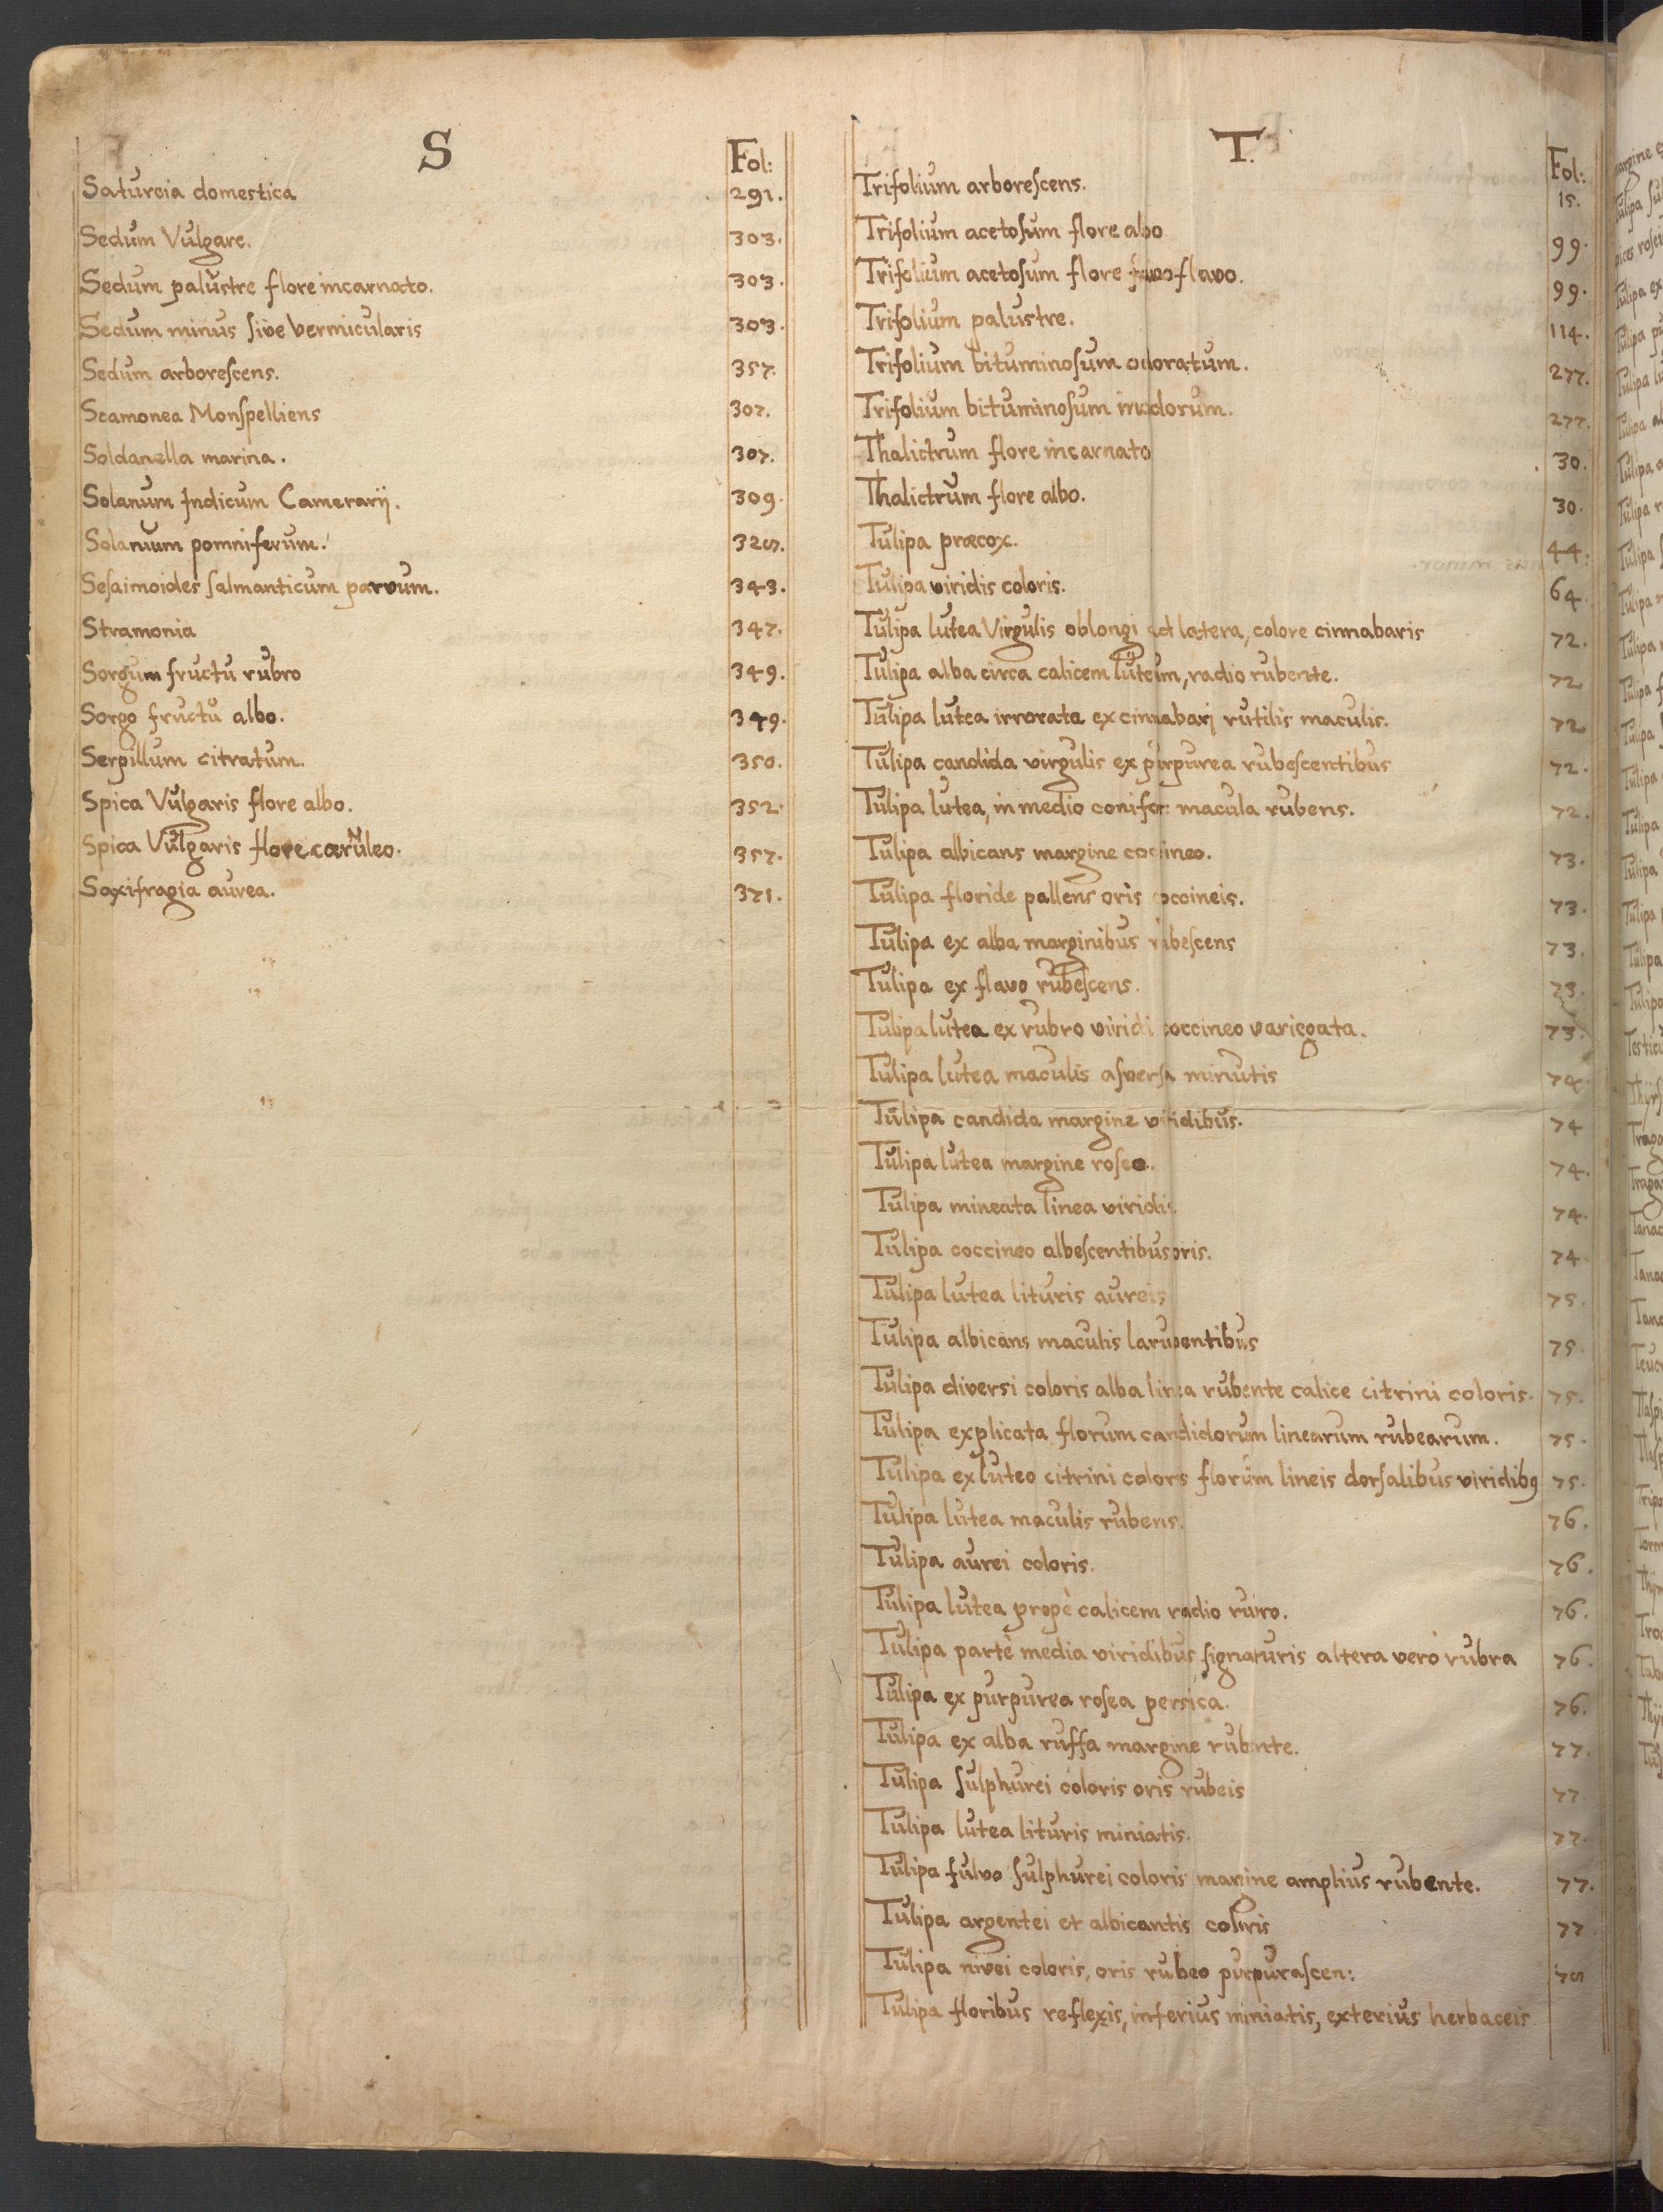 S
Fol:
Saturoia domestica 291.
Sedum Vulgare. 303.
Sedum palustre flore incarnato. 303.
Sedum minus sive vermicularis 303.
Sedum arborescens. 357.
Scamonea Monspelliens 307.
Soldanella marina. 307.
Solanum Indicum Camerarij. 309.
Solanum pomniferum. 325.
Sesaimoides salmanticum parvum. 343.
Stramonia 347.
Sorgum fructu rubro 349.
Sorgo fructu albo. 349.
Serpillum citratum. 350.
Spica Vulgaris flore albo. 352.
Spica Vulgaris flore cæruleo. 357.
Saxifragia aurea. 371.
T.
Fol:
Trifolium arborescens. 15.
Trifolium acetosum flore abo 99.
Trifolium acetosum flore flavo. 99.
Trifolium palustre. 114.
Trifolium bituminosum odoratum. 277.
Trifolium bituminosum inodorum. 277.
Thalictrum flore incarnato 30.
Thalictrum flore albo. 30.
Tulipa præcox. 44.
Tulipa viridis coloris. 64.
Tulipa lutea Virgulis oblongi ad latera, colore cinnabaris 72.
Tulipa alba circa calicem luteum, radio rubente. 72
Tulipa lutea irrorata ex cinnabari rutilis maculis. 72
Tulipa candida virgulis ex purpurea rubescentibus 72.
Tulipa lutea, in medio conifor: macula rubens. 72.
Tulipa albicans margine coccineo. 73.
Tulipa floride pallens oris coccineis. 73.
Tulipa ex alba marginibus rubescens 73.
Tulipa ex flavo rubescens. 73.
Tulipa lutea ex rubro viridi coccineo varicgata. 73.
Tulipa lutea maculis asversa minutis 74.
Tulipa candida margine viridibus. 74
Tulipa lutea margine roseo. 74.
Tulipa mineata linea viridis. 74.
Tulipa coccineo albescentibus oris. 74
Tulipa lutea lituris aureis 75.
Tulipa albicans maculis larventibus 75.
Tulipa diversi coloris alba linea rubente calice citrini coloris. 75.
Tulipa explicata florum candidorum linearum rubearum. 75.
Tulipa ex luteo citrini colors florum lineis dorsalibus viridib9 75.
Tulipa lutea maculis rubens. 76.
Tulipa aurei coloris. 76.
Tulipa lutea propè calicem radio ruiro. 76.
Tulipa parte media viridibus signaturis altera vero rubra 76.
Tulipa ex purpurea rosea persica. 76.
Tulipa ex alba ruffa margine rubente. 77.
Tulipa sulphurei coloris oris rubeis 77.
Tulipa lutea lituris miniatis. 77.
Tulipa fulvo sulphurei coloris marine amplius rubente. 77.
Tulipa argentei et albicantis coloris 77
Tulipa nivei coloris, oris rubeo purpurascen: 75
Tulipa floribus reflexis, inferius miniatis, exterius herbaceis